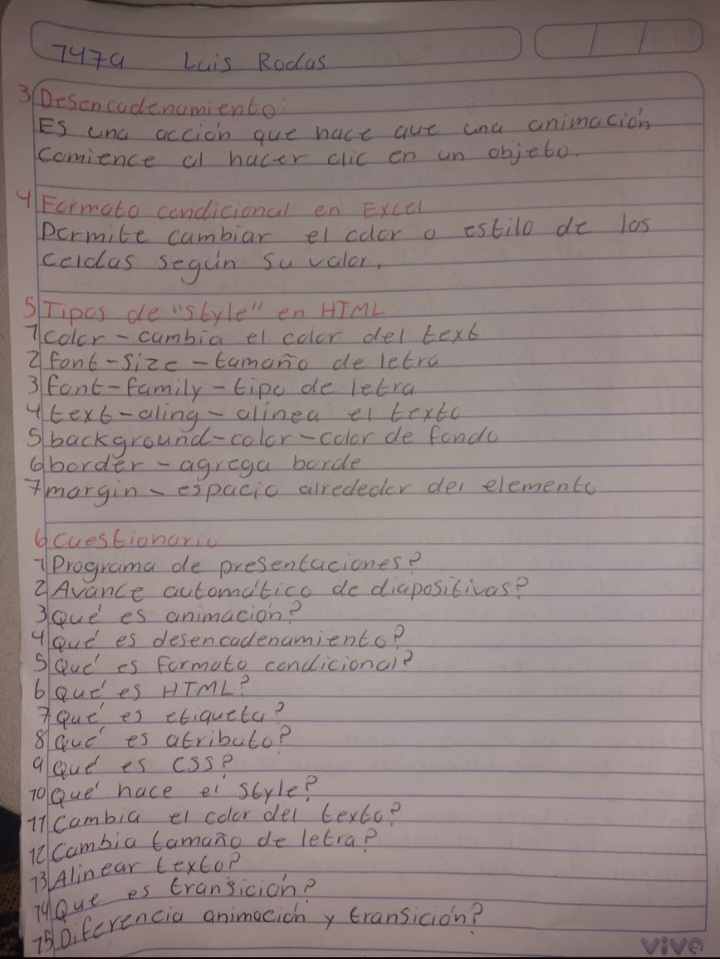 7479 Luis Rodas
3 Desencadenamiento
Es una acción que hace que una animación
comience al hacer clic en un objeto.
4 Formato condicional en Excel
Permite cambiar el color o estilo de las
celdas según su valor.
5 Tipos de "style" en HTML
1 color - cambia el color del text
2 font-size - tamaño de letra
3 font-family - tipo de letra
4 text-aling - alinea el texto
5 background-color - color de fondo
6 border - agrega borde
7 margin - espacio alrededor del elemento
6 Cuestionario
1 Programa de presentaciones?
2 Avance automático de diapositivas?
3 Qué es animación?
4 Qué es desencadenamiento?
5 Qué es formato condicional?
6 Qué es HTML?
7 Qué es etiqueta?
8 Qué es atributo?
9 Qué es CSS?
10 Qué hace el style?
11 Cambia el color del texto?
12 Cambia tamaño de letra?
13 Alinear texto?
14 Que es transición?
15 Diferencia animación y transición?
vivo